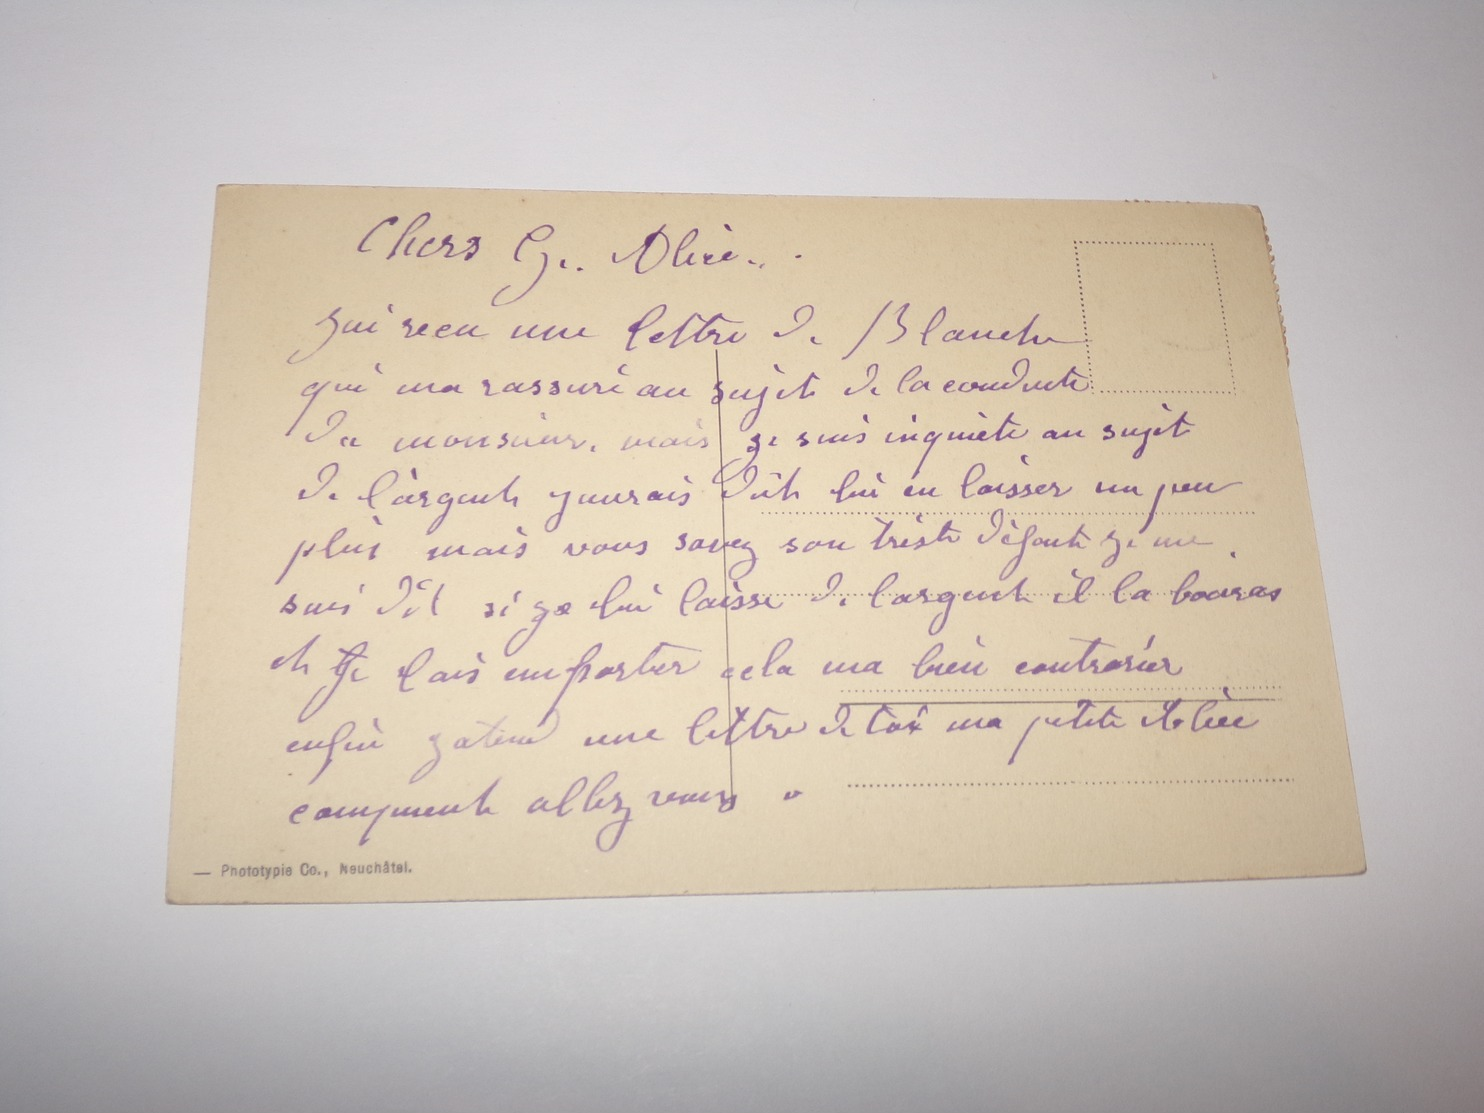 Chers G. Alice..
jai recu une lettre de Blanche
qui ma rassuré au sujet de la conduite
du monsieur. mais je suis inquiète au sujet
de l'argent jaurais dût lui en laisser un peu
plus mais vous savez son triste défaut je me
suis dit si je lui laisse de largent il la boiras
et je lais emporter cela ma bien contrarier
enfin jatend une lettre de toi ma petite Alice
comment allez vous
— Phototypie Co., Neuchâtel.